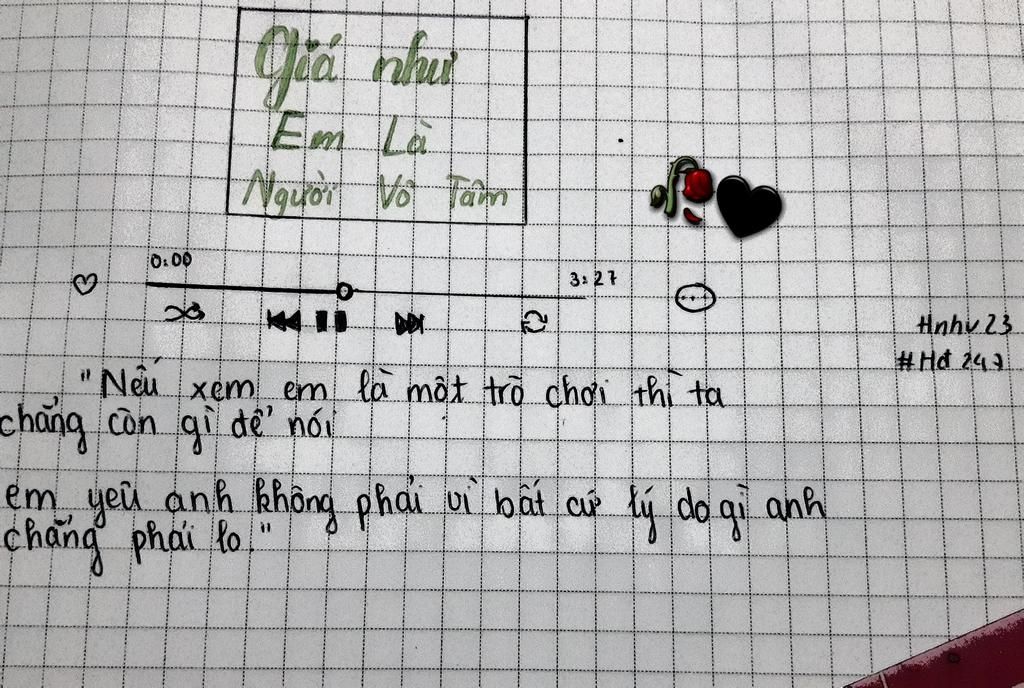 Giá như
Em Là
Người Vô Tâm
0:00
3:27
Hnhv23
#Hđ 247
"Nếu xem em là một trò chơi thì ta
chẳng còn gì để nói
em yêu anh không phải vì bất cứ lý do gì anh
chẳng phải lo."